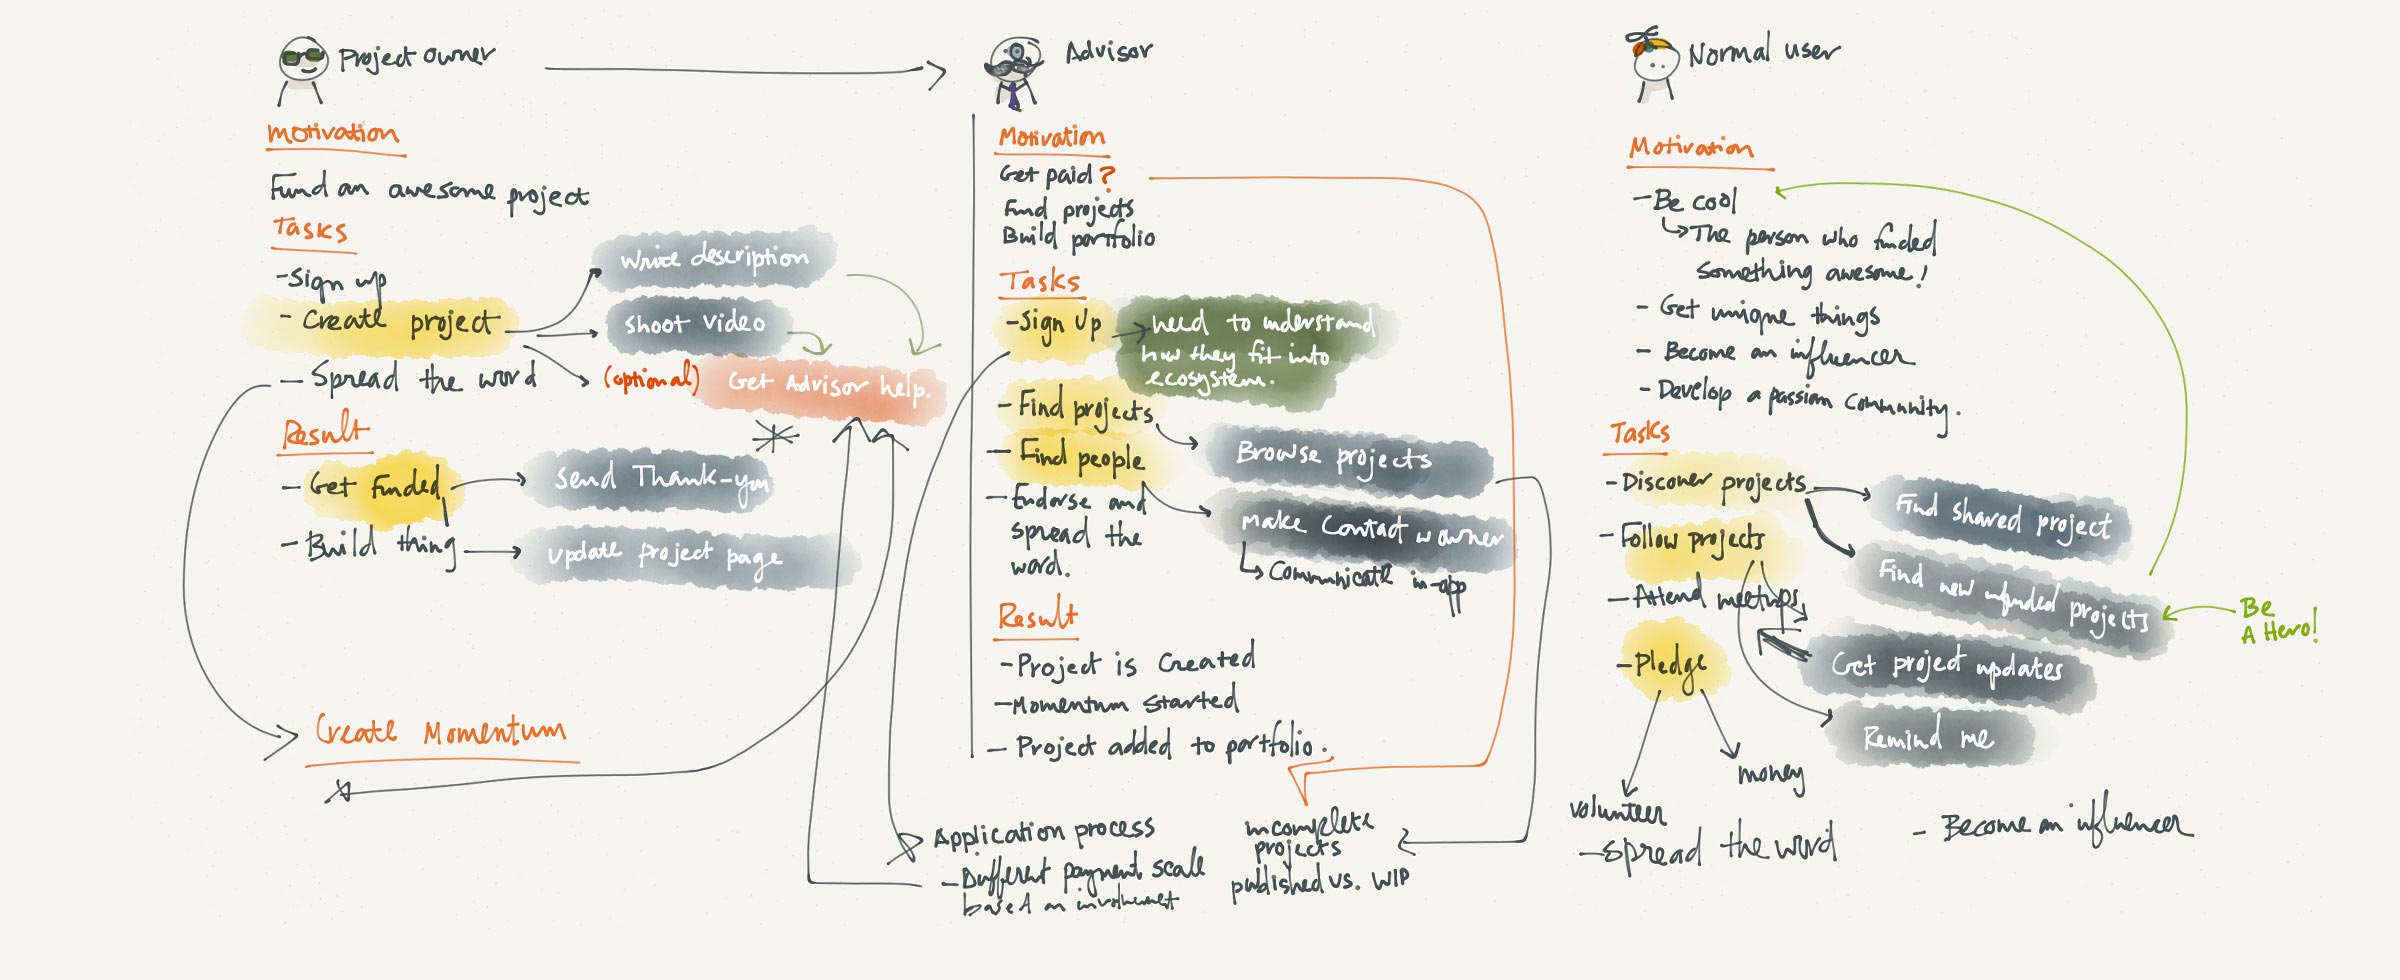 Project owner
Motivation
Fund an awesome project
Tasks
-Sign up
- Create project
- Spread the word
write description
shoot video
(optional) Get Advisor help.
Result
- Get funded
- Build thing
Send Thank-you
update project page
Create Momentum
Advisor
Motivation
Get paid?
Find projects
Build portfolio
Tasks
-Sign Up
need to understand
how they fit into
ecosystem.
- Find projects
- Find people
- Endorse and
spread the
word.
Browse projects
make contact w owner
Communicate in-app
Result
-Project is Created
-Momentum started
- Project added to portfolio.
Application process
-Different payment scale
based on involvement
incomplete
projects
published vs. WIP
Normal user
Motivation
-Be cool
The person who funded
Something awesome!
- Get unique things
- Become an influencer
- Develop a passion Community.
Tasks
-Discover projects
-Follow projects
-Attend meetups
-Pledge
Find shared project
Find new unfunded projects
Get project updates
Remind me
Be
A Hero!
money
volunteer
-Spread the word
- Become an influencer